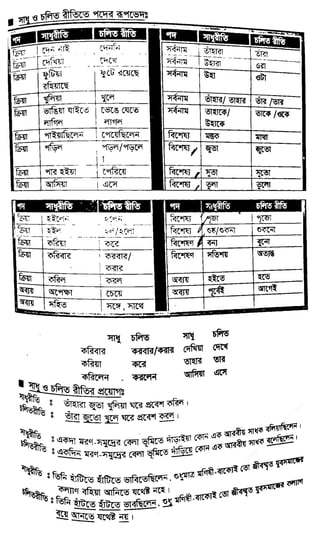 ■ সাধু ও চলিত রীতিতে পদের রূপভেদঃ
পদ সাধুরীতি চলিত রীতি পদ সাধুরীতি চলিত রীতি
ক্রিয়া দেন নাই দেননি সর্বনাম তাঁহারা তারা
ক্রিয়া দেখিয়া দেখে সর্বনাম উহারা ওরা
ক্রিয়া ফুটিয়া রহিয়াছে ফুটে রয়েছে সর্বনাম উহা ওটা
ক্রিয়া খুলিয়া খুলে সর্বনাম তাঁহার/ তাহার তাঁর /তার
ক্রিয়া ভাঙিয়া যাইতে লাগিল ভেঙে যেতে লাগল সর্বনাম তাহাকে/ উহাকে তাকে /ওকে
ক্রিয়া পাইয়াছিলেন পেয়েছিলেন বিশেষ্য মস্তক মাথা
ক্রিয়া পড়িল পড়ল/পড়লে । বিশেষ্য জুতা জুতো
ক্রিয়া পার হইয়া পেরিয়ে বিশেষ্য সুতা সুতো
ক্রিয়া আসিয়া এসে বিশেষ্য তুলা তুলো
পদ সাধুরীতি চলিত রীতি পদ সাধুরীতি চলিত রীতি
ক্রিয়া হইলেন হলেন বিশেষ্য পূজা পুজো
ক্রিয়া হইল হল/হলো বিশেষণ শুষ্ক/শুকনা শুকনো
ক্রিয়া করিয়া করে বিশেষণ বন্য বুনো
ক্রিয়া করিবার করবার/ করার বিশেষণ সাতিশয় অত্যন্ত
ক্রিয়া করিল করল অব্যয় হইতে হতে
অব্যয় অপেক্ষা চেয়ে অব্যয় পূর্বেই আগেই
অব্যয় সহিত সঙ্গে, সাথে
সাধু চলিত সাধু চলিত
করিবার করবার/করার দেখিয়া দেখে
করিয়া করে তাহার তার
করিলেন করলেন আসিয়া এসে
■ সাধু ও চলিত রীতির প্রয়োগঃ
সাধুরীতি : তাহারা জুতা খুলিয়া ঘরে প্রবেশ করিল।
চলিতরীতি : তারা জুতো খুলে ঘরে প্রবেশ করল।
সাধুরীতি : একদা মরণ-সমুদ্রের বেলা ভূমিতে দাঁড়াইয়া কোন এক আরবীয় সাধক বলিয়াছিলেন।
চলিতরীতি : একদিন মরণ-সমুদ্রের বেলা ভূমিতে দাঁড়িয়ে কোন এক আরবীয় সাধক বলেছিলেন।
সাধুরীতি : তিনি হাঁটিতে হাঁটিতে ভাবিতেছিলেন, শুধুমাত্র মণিষী-বাক্যেই তো জীবন্মৃত যুবসমাজের
কল্যাণ বহিয়া আনিতে যথেষ্ট নহে।
চলিতরীতি : তিনি হাঁটতে হাঁটতে ভাবছিলেন, শুধু মণিষী-বাক্যেই তো জীবন্মৃত যুবসমাজের কল্যাণ
বয়ে আনতে যথেষ্ট নয়।